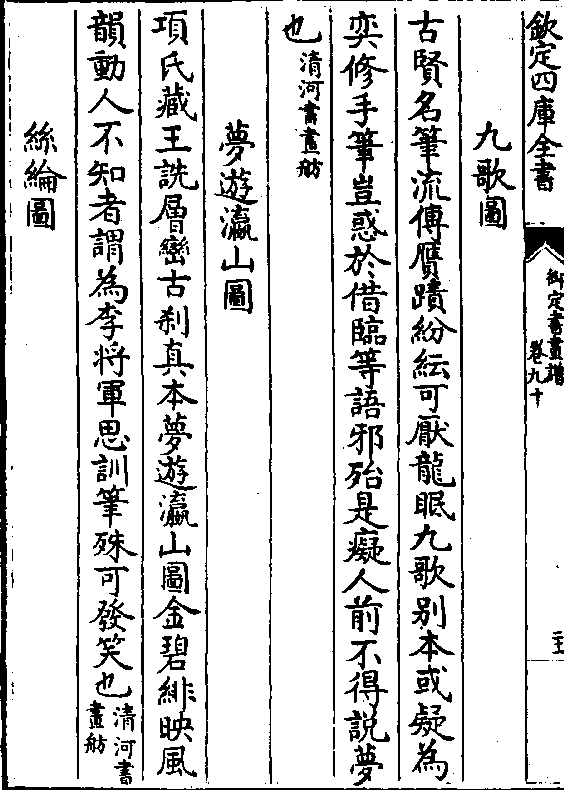 欽定四庫全書
御定書畫譜
卷九十
九歌圖
古賢名筆流傳贋蹟紛紜可厭龍眠九歌别本或疑為
奕修手筆豈惑於借臨等語邪殆是癡人前不得説夢
也清河書畫舫
夢遊瀛山圖
項氏藏王詵層巒古刹真本夢遊瀛山圖金碧緋映風
韻動人不知者謂為李将軍思訓筆殊可發笑也清河書畫舫
絲綸圖